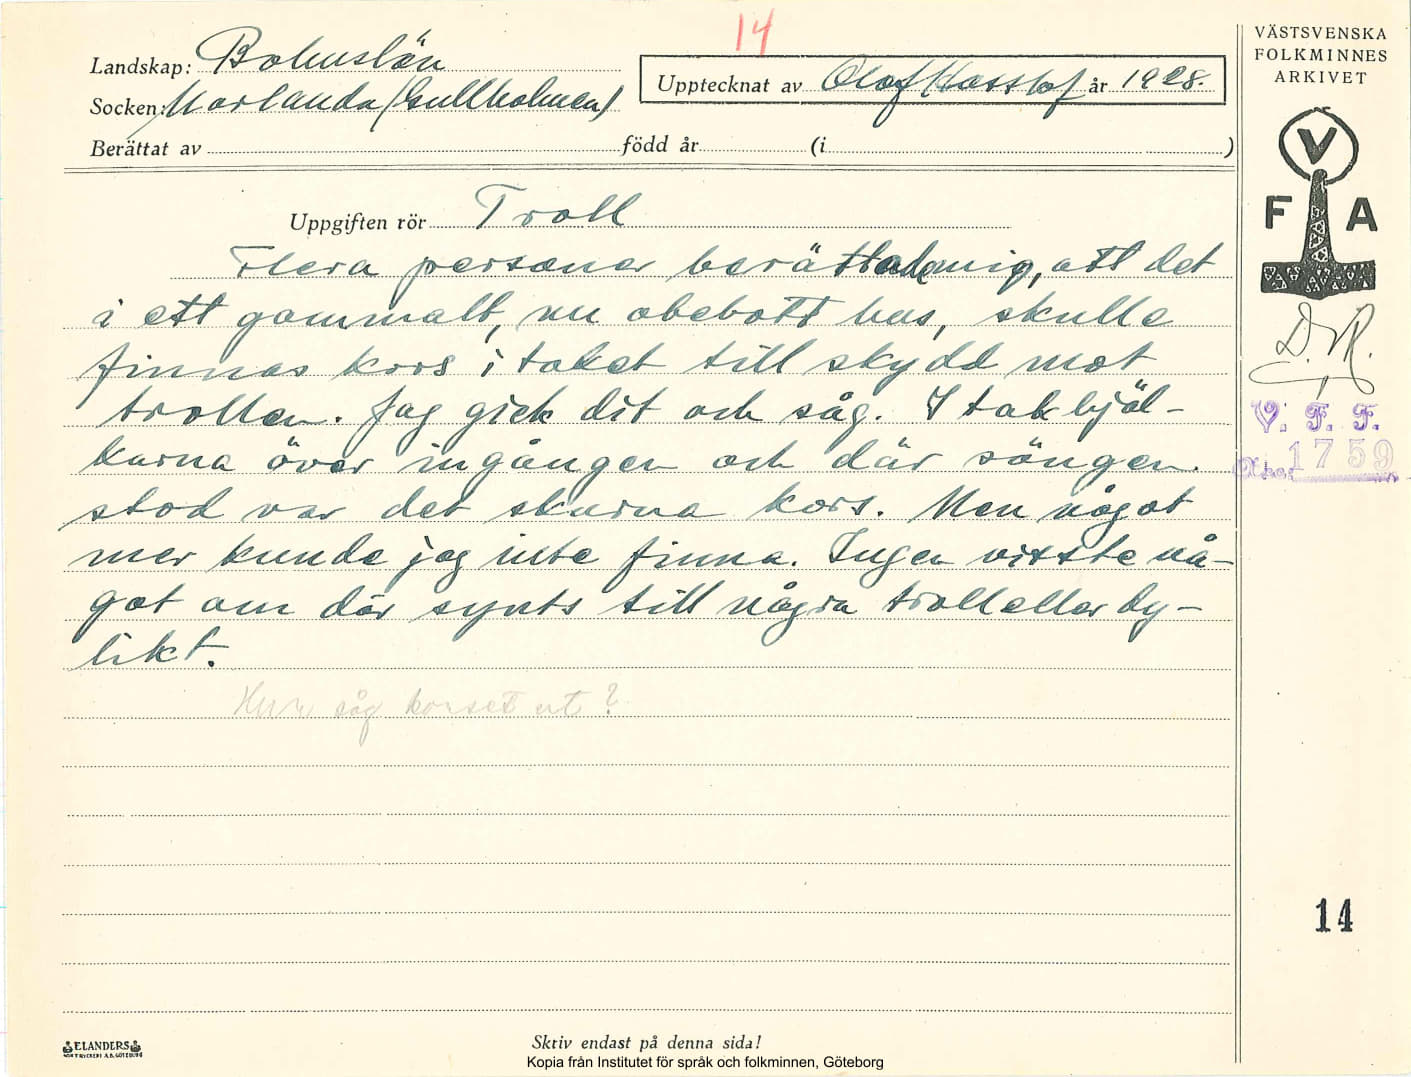 14
VÄSTSVENSKA
FOLKMINNES
ARKIVET
Landskap: Bohuslän
Upptecknat av Olof Hasslöf år 1928.
Socken: Morlanda (Gullholmen)
Berättat av född år (i )
V
F A
Uppgiften rör Troll
Flera personer berättade mig, att det
i ett gammalt, nu obebott hus, skulle
finnas kors i taket till skydd mot
trollen. Jag gick dit och såg. I takbjäl-
karna över ingången och där sängen
stod var det skurna kors. Men något
mer kunde jag inte finna. Ingen visste nå-
got om där synts till några troll eller dy-
likt.
Huru såg korset ut?
D. R.
V. F. F.
1759
14
ELANDERS
BOKTRYCKERI A.B. GÖTEBORG
Skriv endast på denna sida!
Kopia från Institutet för språk och folkminnen, Göteborg